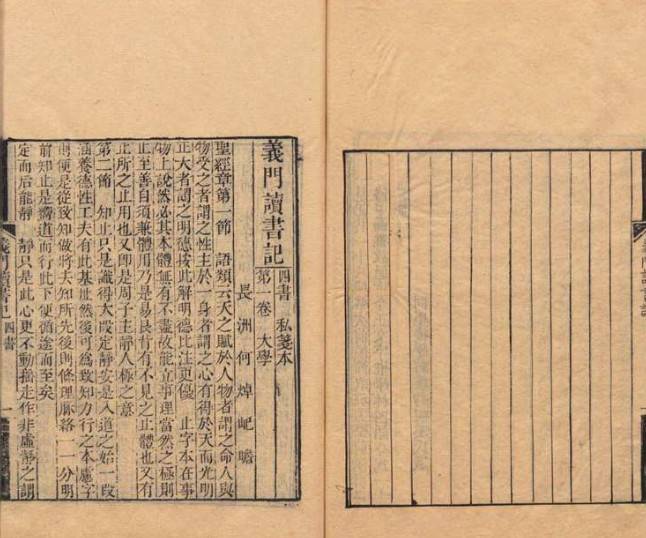 義門讀書記
四書 私箋本
第一卷 大學
長洲何焯屺瞻
聖經章第一節 語類云天之賦於人物者謂之命人與
物受之者謂之性主於一身者謂之心有得於天而光明
正大者謂之明德按此解明德比注更優 止字本在事
物上說然必其本體無有不盡故能立事理當然之極則
止至善自須兼體用乃是易艮背有不見之止體也又有
止所之止用也又即是周子主靜人極之意
第二節 知止只是識得大段定靜安是入道之始一段
涵養德性工夫有此基址然後可為致知力行之本慮字
則便是從致知做將去知所先後則條理脈絡一一分明
前知止是嚮道而行此下便循途而至矣
定而后能靜 靜只是此心更不動搖走作非虛靜之謂
義門讀書記 四書
一